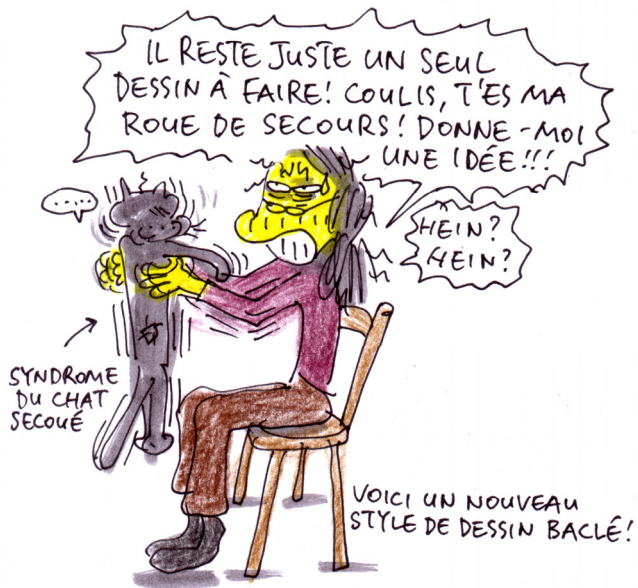 IL RESTE JUSTE UN SEUL
DESSIN À FAIRE! COULIS, T'ES MA
ROUE DE SECOURS! DONNE-MOI
UNE IDÉE!!!
.....
HEIN?
HEIN?
SYNDROME
DU CHAT
SECOUÉ
VOICI UN NOUVEAU
STYLE DE DESSIN BACLÉ!